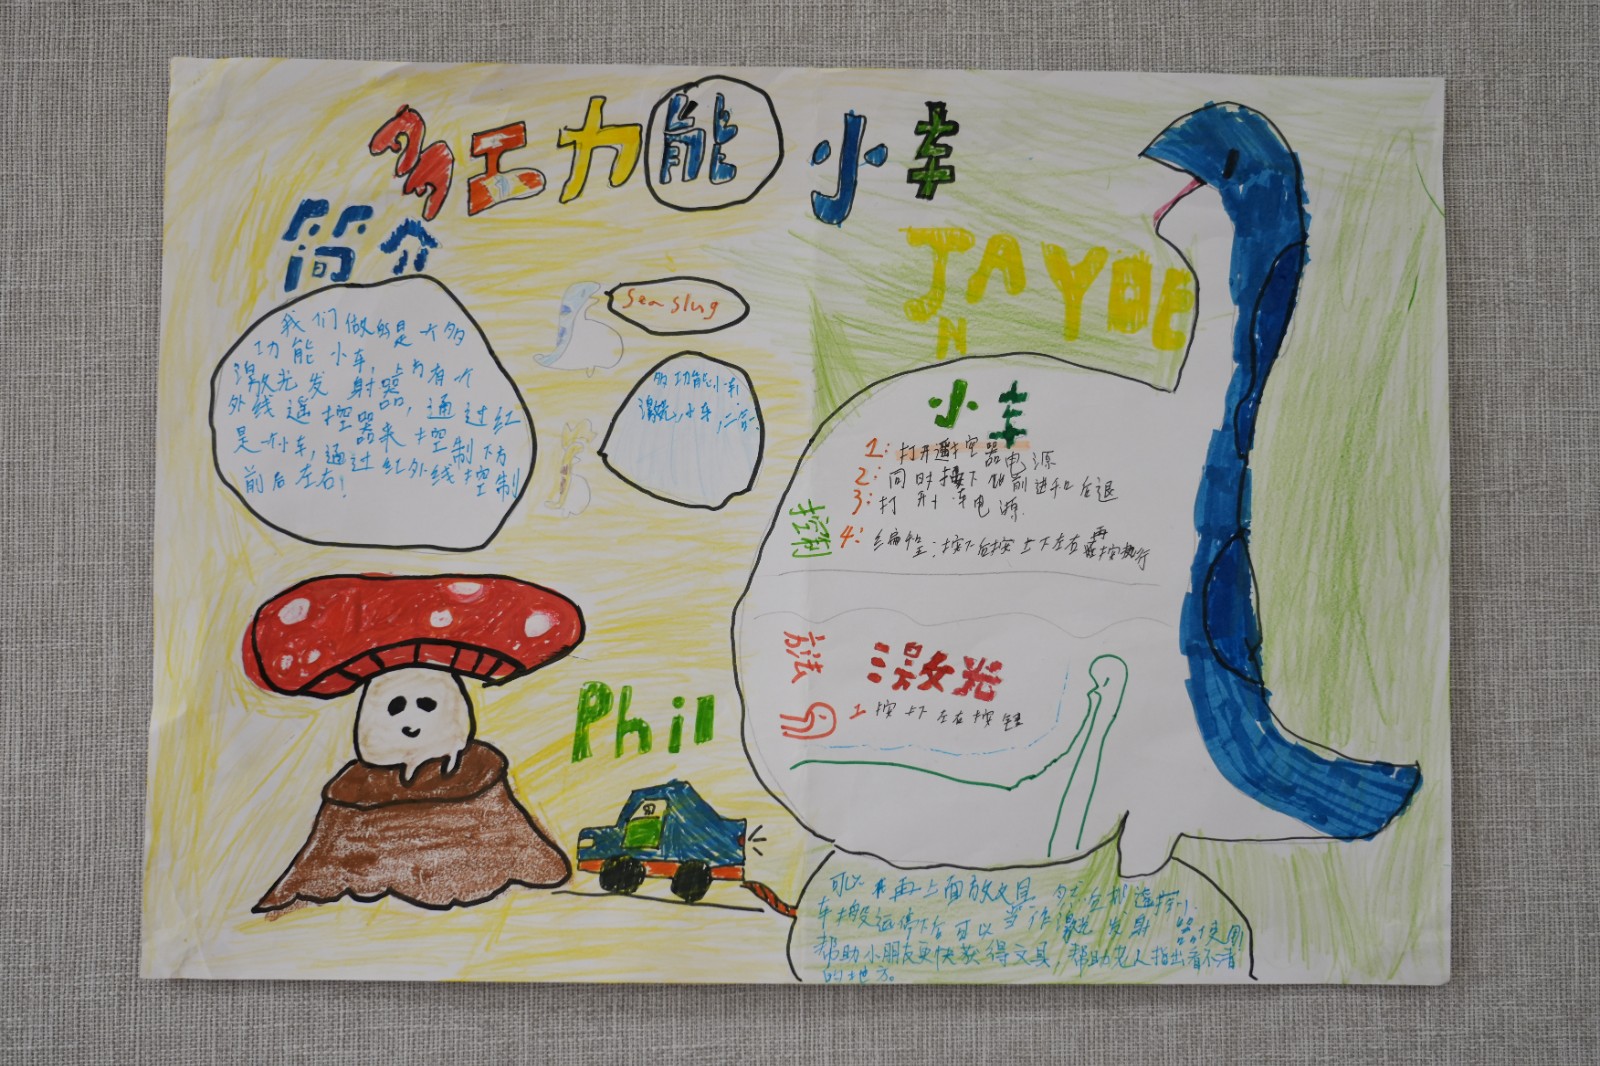 多功能小车
简介
我们做的是一个多
功能小车,上方有个
激光发射器
外线遥控器,通过红
是一小车,通过红外线控制
前后左右!
Sea slug
多功能小车:
激光,小车,二合一.
JAYDE
N
小车
控制
方法
1:打开遥控器电源
2:同时按下 前进和后退
3:打开小车电源
4:编程:按下后按上下左右再 执行
激光
1 按上下左右按钮
Phil
可以在车上面放文具,然后把遥控小
车搬远停下后可以当作激光发射器使用
帮助小朋友更快获得文具,帮助老人指出看不清
的地方。